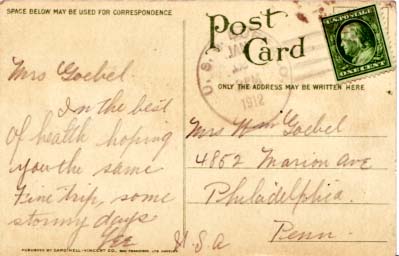 SPACE BELOW MAY BE USED FOR CORRESPONDENCE
Mrs Goebel
In the best
of health hoping
you the same
Fine trip, some
stormy days
PUBLISHED BY CARDINELL-VINCENT CO., SAN FRANCISCO, LOS ANGELES
Post
Card
ONLY THE ADDRESS MAY BE WRITTEN HERE
U.S.
JAN
PM
1912
U.S. POSTAGE
ONE CENT
Mrs Wm Goebel
4852 Marion Ave
Philadelphia.
Penn.
U.S.a